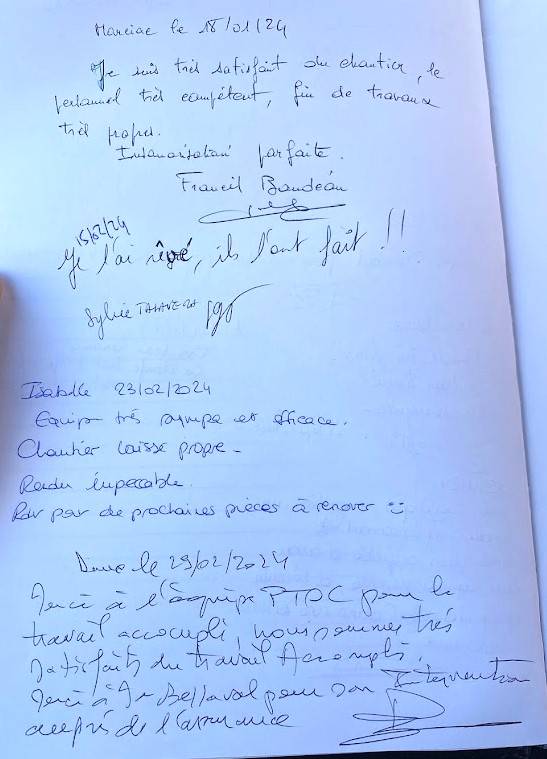 Marciac le 18/01/24
Je suis très satisfait du chantier, le
personnel très compétent, fin de travaux
très propre.
parfaite.
Francis Baudéan
15/02/24
Je l'ai rêvé, ils l'ont fait !!
Sylvie TALAVERA
Isabelle 23/02/2024
Equipe très sympa et efficace.
Chantier laissé propre -
Rendu impeccable.
Rdv pour de prochaines pièces à rénover :)
le 29/02/2024
Merci à l'équipe PTDC pour le
travail accompli, nous sommes très
satisfaits du travail Accompli.
Merci à Mr Bellaval pour son Intervention
auprès de l'assurance